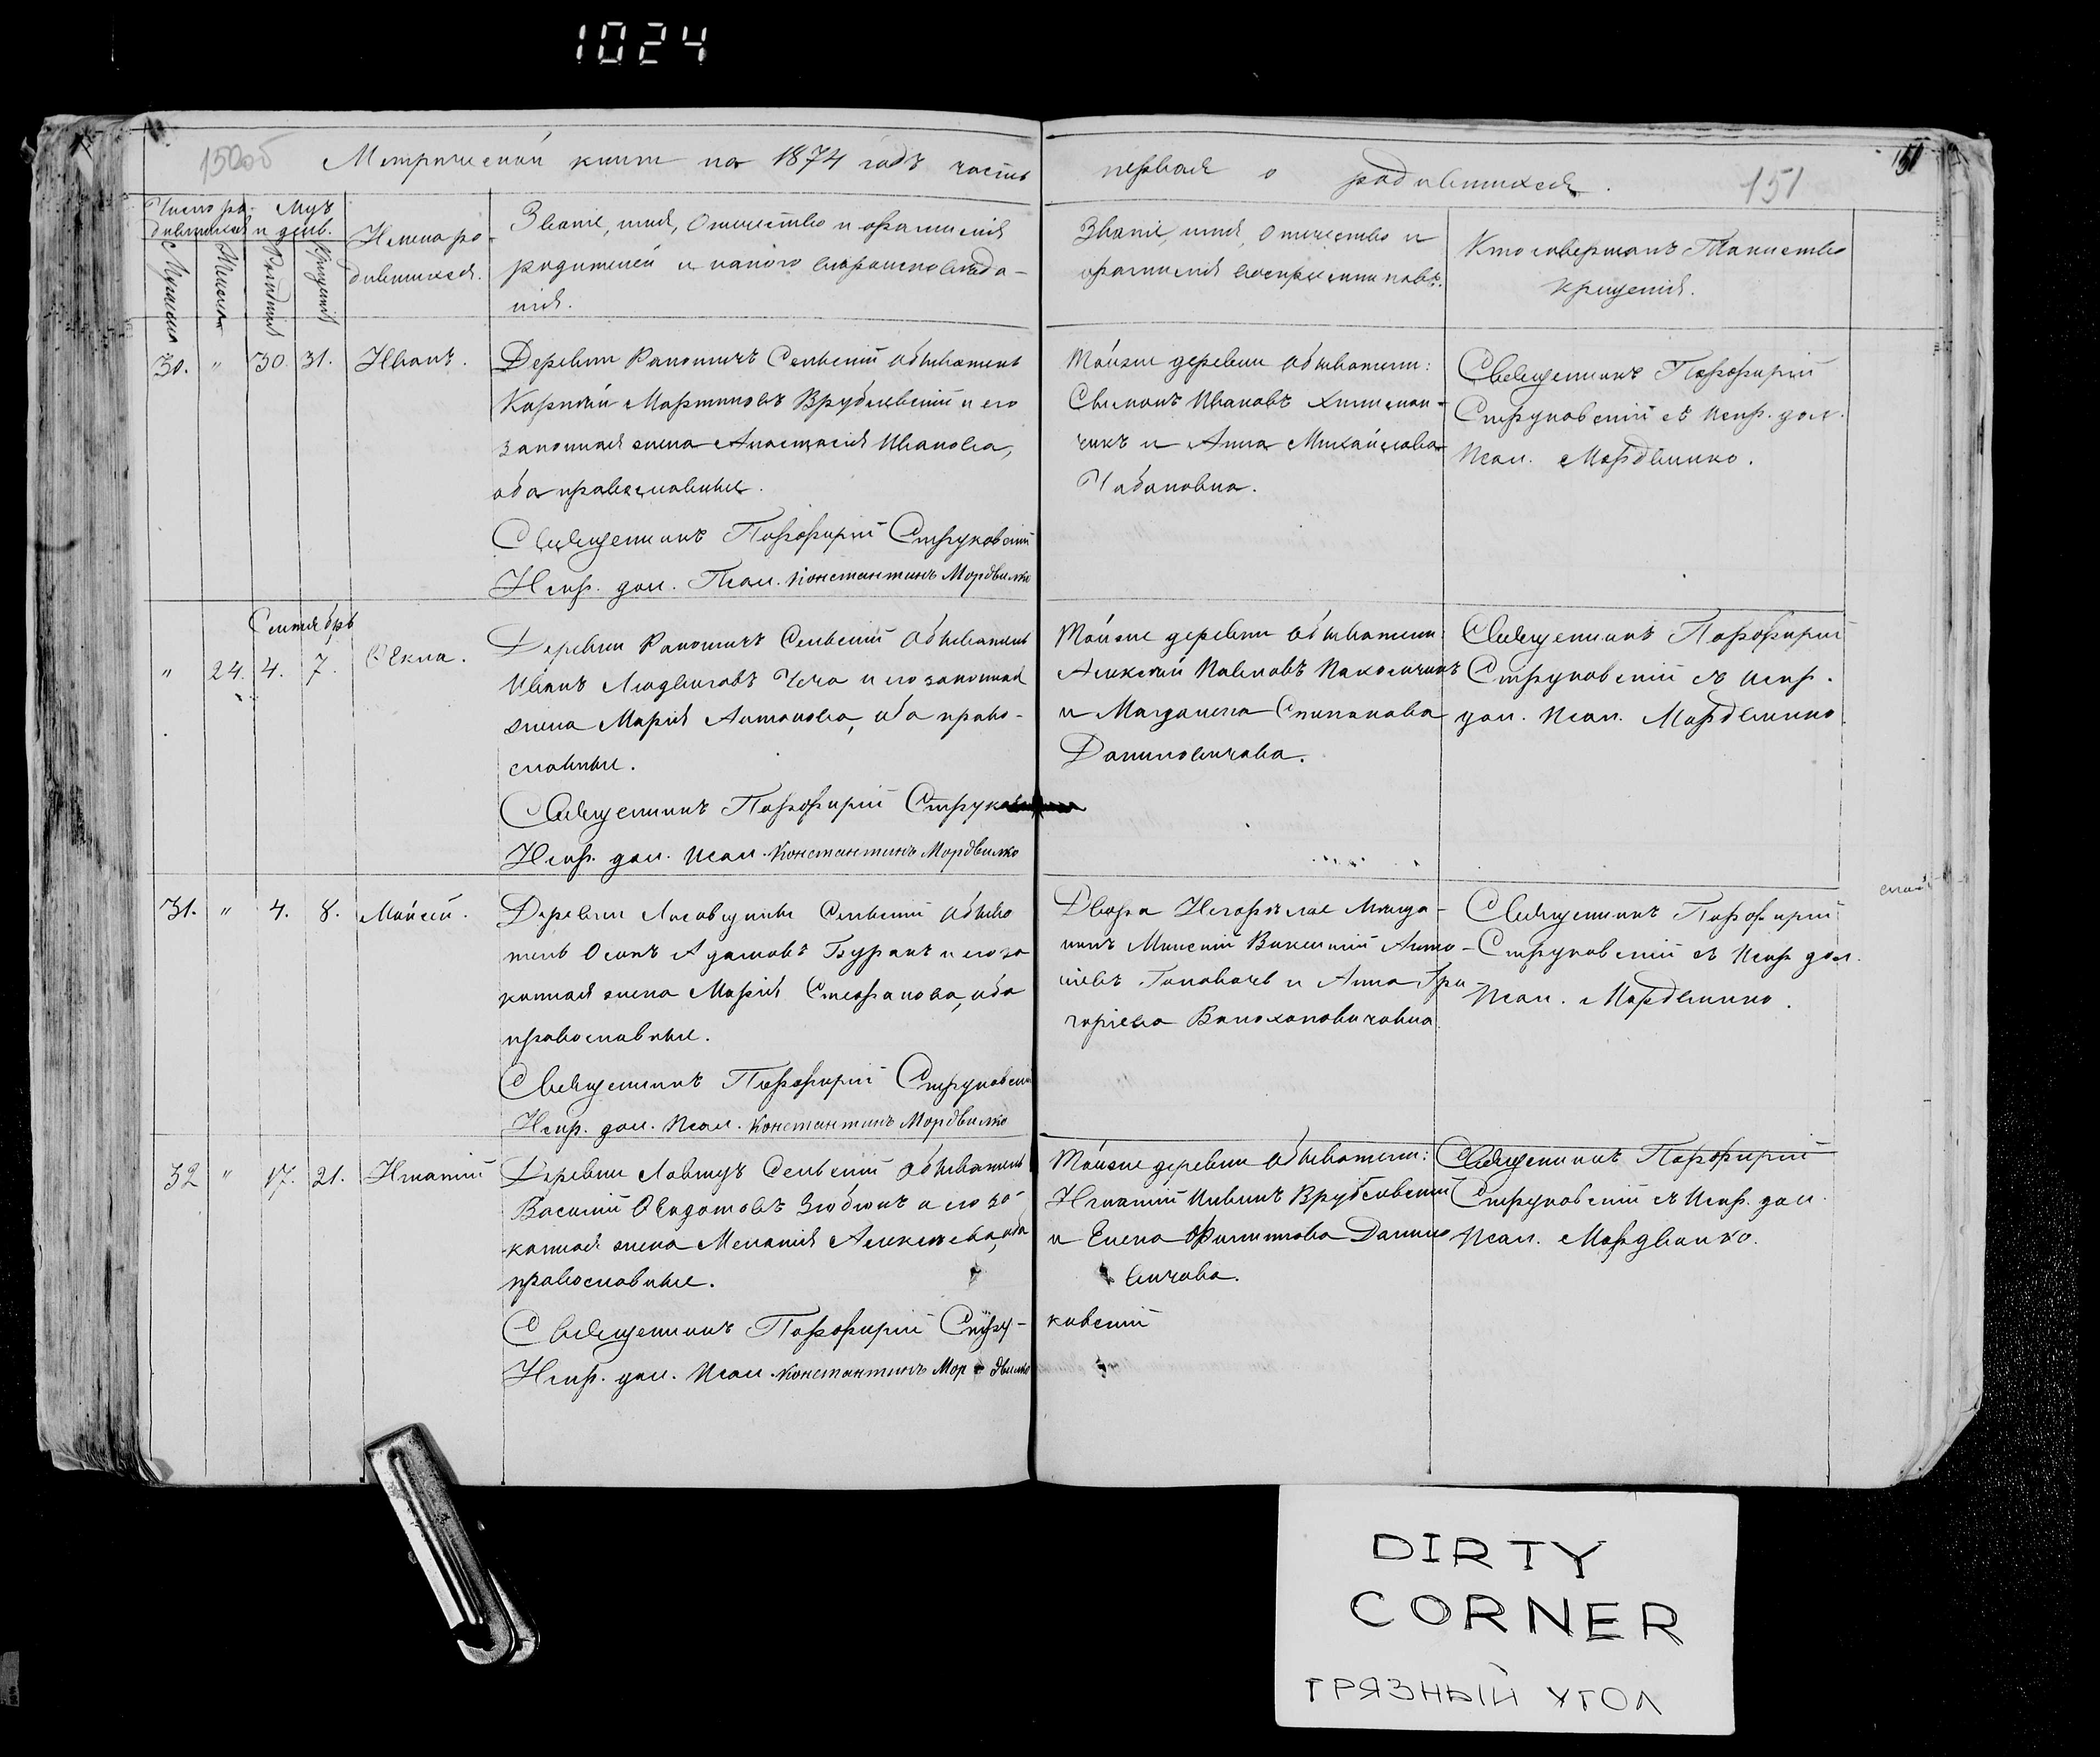 1024
150об
Метрической книги на 1874 годъ часть
первая о родившихся.
151
151
Число ро- Мцъ
дившихся и день.
Мужеска
Женска
Рожденія
Крещенія
Имена ро-
дившихся.
Званіе, имя, отчество и фамилія
родителей и какого вѣроисповѣда-
нія.
Званіе, имя, отчество и
фамилія воспріемниковъ.
Кто совершалъ Таинство
крещенія.
30. " 30. 31. Иванъ.
Деревни Сельскій обыватель
Мартиновъ Врублевскій и его
законная жена Анастасія Иванова,
оба православные.
Священникъ Порфирій Струковскій
Испр. дол. Псал. Константинъ Мордвилко
Тойже деревни обыватели:
Ивановъ
и Анна Михайлова
Чабановна.
Священникъ Порфирій
Струковскій съ испр. дол.
Псал. Мордвилко.
Сентябрь
" 24. 4. 7. Ѳекла.
Деревни Сельскій обыватель
Иванъ Людвиговъ и его законная
жена Марія Антонова, оба право-
славные.
Священникъ Порфирій
Испр. дол. Псал. Константинъ Мордвилко
Тойже деревни обыватели:
Алексѣй Павловъ
и Магдалена Степанова
Даниловичова.
Священникъ Порфирій
Струковскій съ испр.
дол. Псал. Мордвилко
31. " 4. 8. Моисей.
Деревни Сельскій обыва
тель Осипъ Адамовъ Буракъ и его за
конная жена Марія Стефанова, оба
православные.
Священникъ Порфирій Струковскій
Испр. дол. Псал. Константинъ Мордвилко
Двора Негорѣлое Мѣща-
нинъ Минскій Викентій Анто-
ніевъ и Анна Гри
горіева
Священникъ Порфирій
Струковскій съ Испр. дол.
Псал. Мордвилко.
32 " 17. 21. Игнатій
Деревни Сельскій обыватель
Василій Ѳедотовъ и его за-
конная жена Меланія Алексѣева, оба
православные.
Священникъ Порфирій Стру-
ковскій
Испр. дол. Псал. Константинъ Мор двилко
Тойже деревни обыватели:
Игнатій Врублевскій
и Елена Филиппова Данило
вичова.
Священникъ Порфирій
Струковскій съ Испр. дол.
Псал. Мордвилко.
DIRTY
CORNER
ГРЯЗНЫЙ УГОЛ